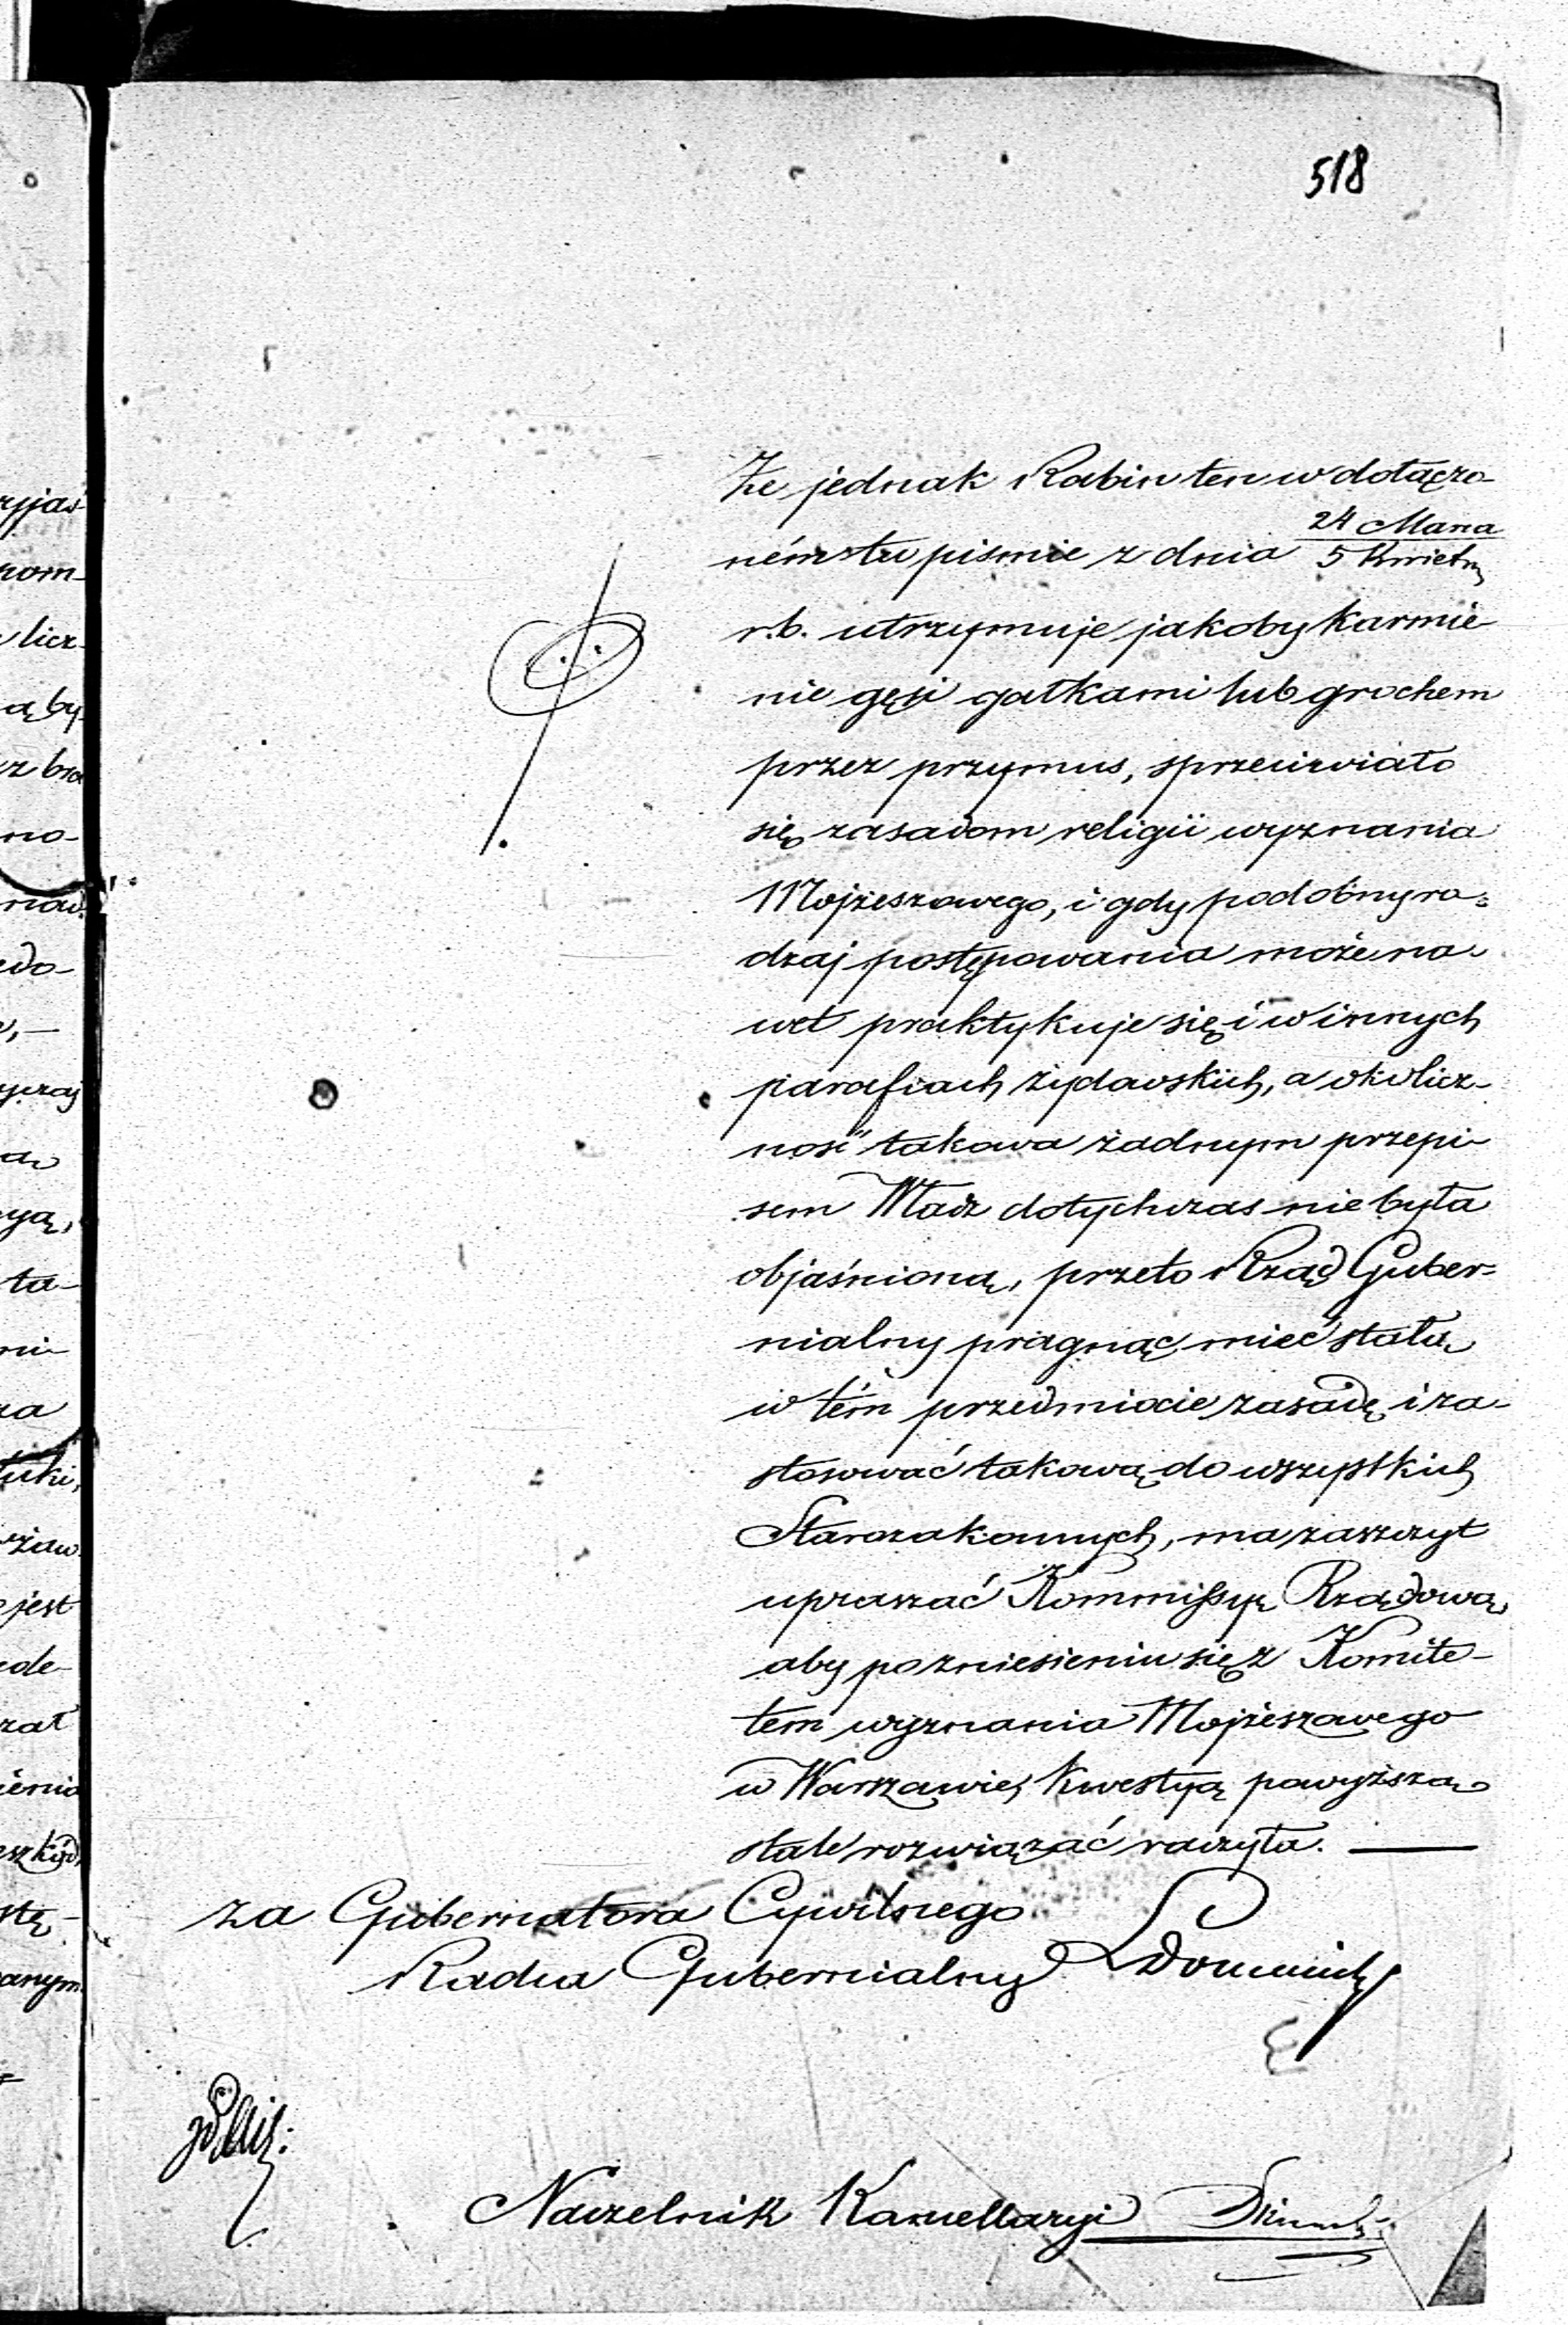 518
Że jednak Rabin ten w dołączo-
ném tu piśmie z dnia 24 Marca / 5 Kwietn.
r.b. utrzymuje jakoby karmie-
nie gęsi gałkami lub grochem
przez przymus, sprzeciwiało
się zasadom religii wyznania
Mojżeszowego, i gdy podobny ro=
dzaj postępowania może na-
wet praktykuje się i w innych
parafiach żydowskich, a okolicz-
ność takowa żadnym przepi-
sem Władz dotychczas nie była
objaśnioną, przeto Rząd Guber=
nialny pragnąc mieć stałą
w tém przedmiocie zasadę i za-
stosować takową do wszystkich
Starozakonnych, ma zaszczyt
upraszać Kommissyą Rządową,
aby po zniesieniu się z Komite-
tem wyznania Mojżeszowego
w Warszawie, kwestyą powyższą
stale rozwiązać raczyła. —
za Gubernatora Cywilnego
Radca Gubernialny
Naczelnik Kancellaryi